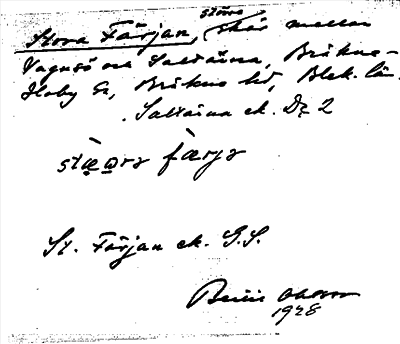 större
Stora Färjan, skär mellan
Vagnsö och Saltärna, Bräkne-
Hoby sn, Bräkne hd, Blek. län.
Saltärna ek. Dς 2
stæ̀ɷrɜ færjɜ
St. Färjan ek. G.S.
Bertil Ohlsson
1928